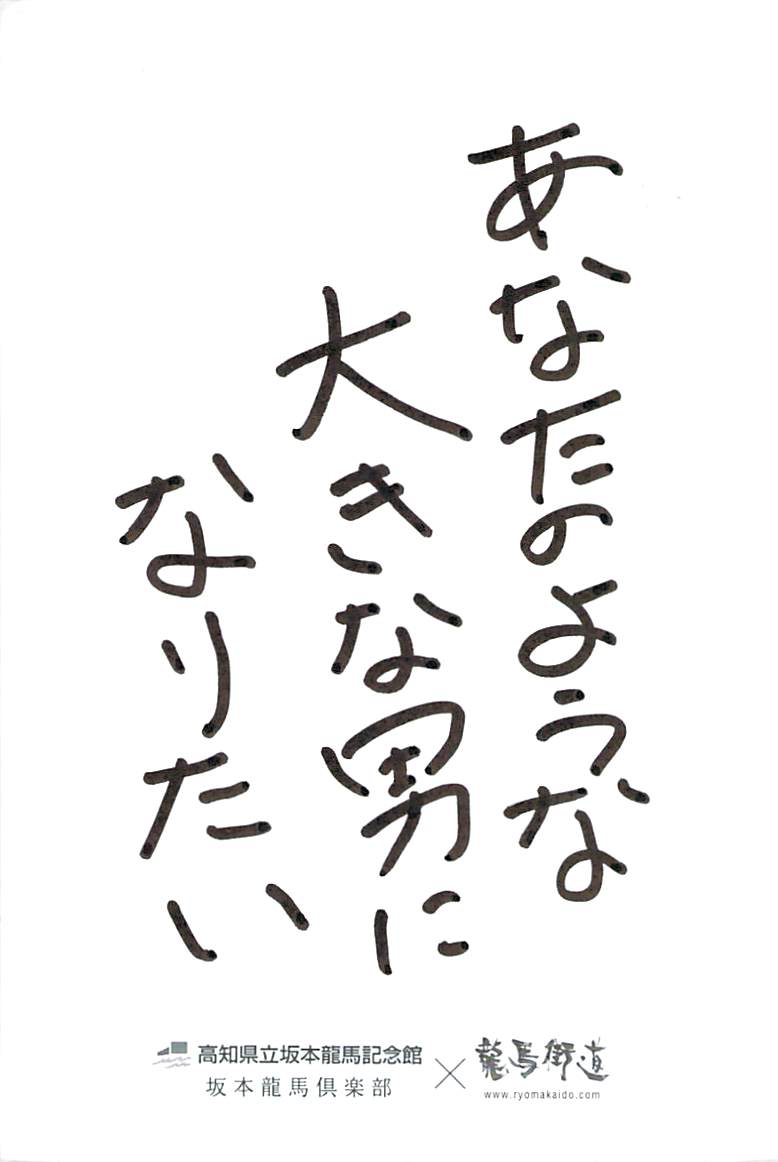 あなたのような
大きな男に
なりたい
高知県立坂本龍馬記念館
坂本龍馬倶楽部
×
龍馬街道
www.ryomakaido.com